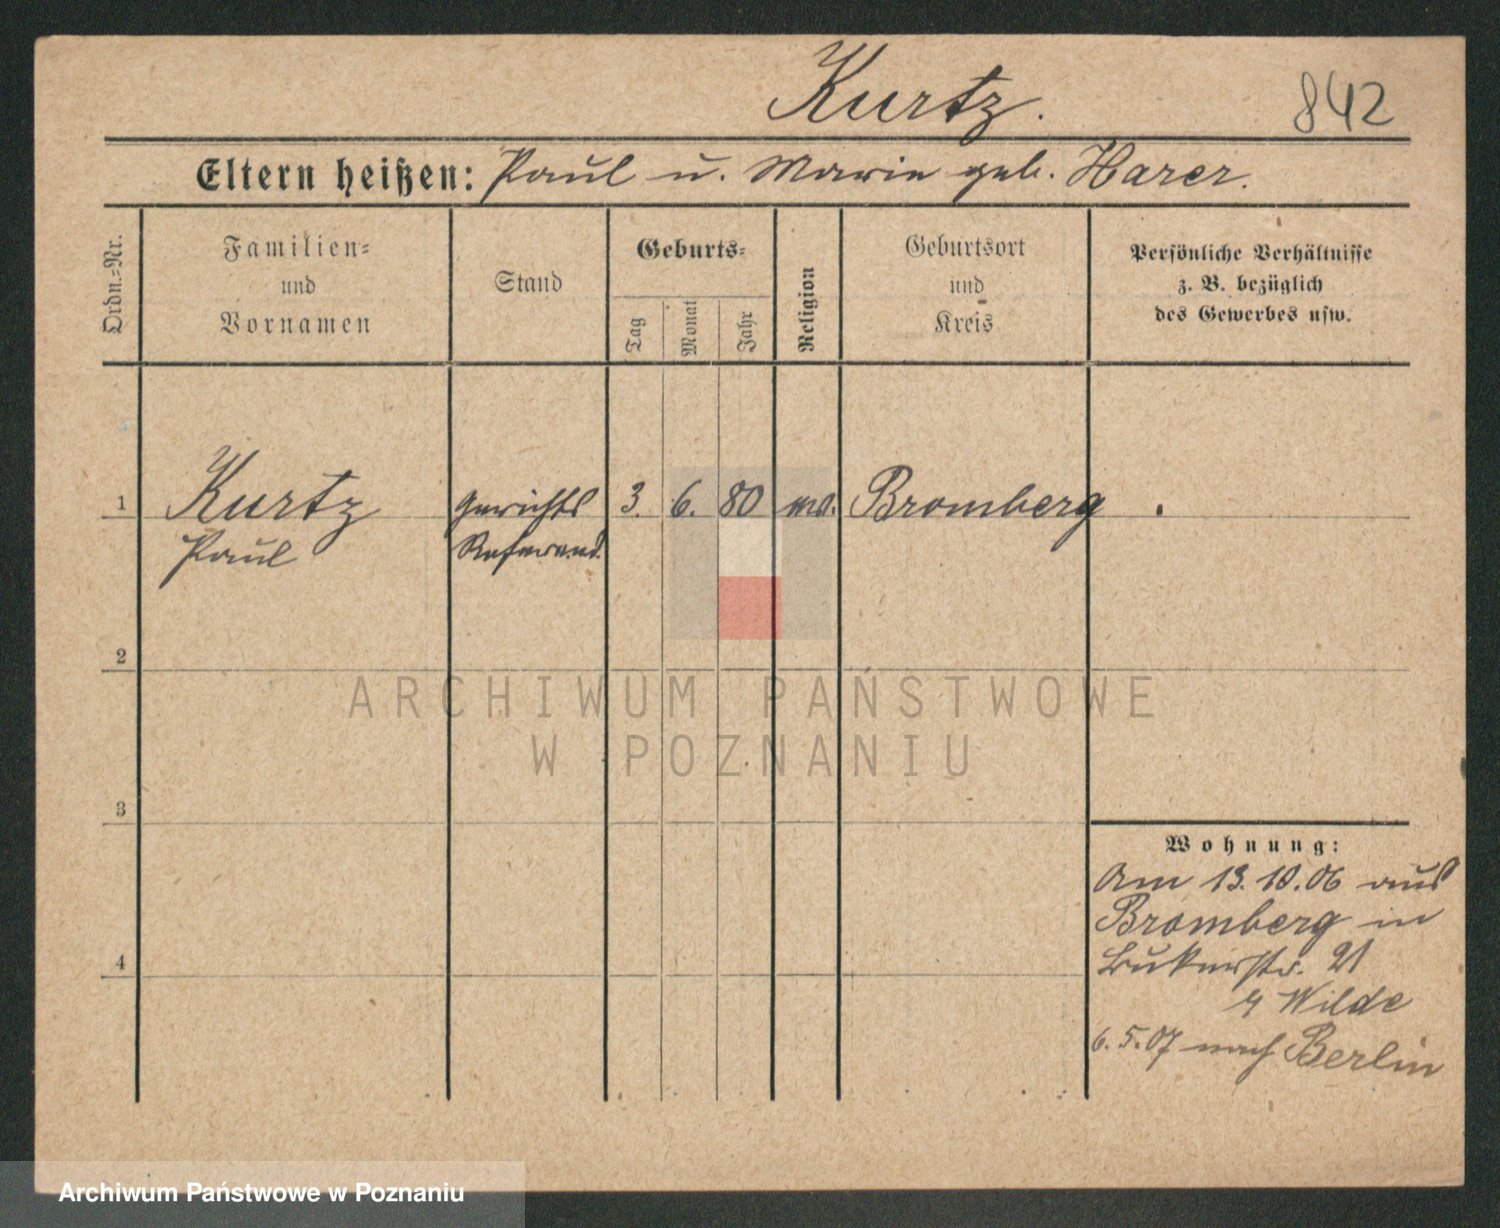 Kurtz.
842
Eltern heißen: Paul u. Marie geb. Harer.
Ordn.=Nr.
Familien=
und
Vornamen
Stand
Geburts=
Tag
Monat
Jahr
Religion
Geburtsort
und
Kreis
Persönliche Verhältnisse
z. B. bezüglich
des Gewerbes usw.
1
Kurtz
Paul
Gerichts
Referend.
3.
6.
80
Bromberg
2
3
4
ARCHIWUM PAŃSTWOWE
W POZNANIU
Wohnung:
Am 13.10.06 aus
Bromberg in
Bukerstr. 21
Wilde
6.5.07 nach Berlin
Archiwum Państwowe w Poznaniu